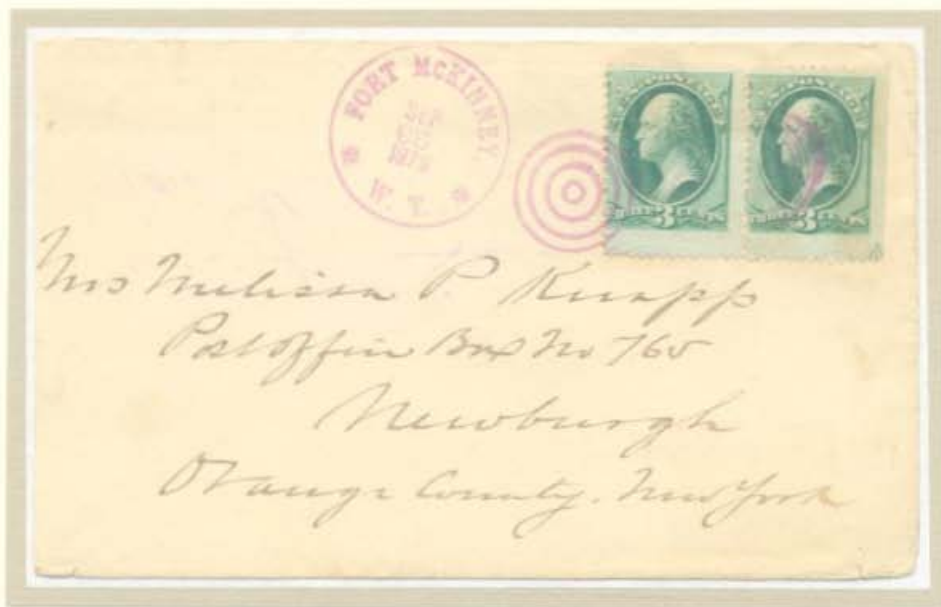 FORT MCKINNEY,
W. T.
U.S. POSTAGE
THREE 3 CENTS
U.S. POSTAGE
THREE 3 CENTS
Mrs Melissa P Knapp
Post Office Box No 765
Newburgh
Orange County. New York